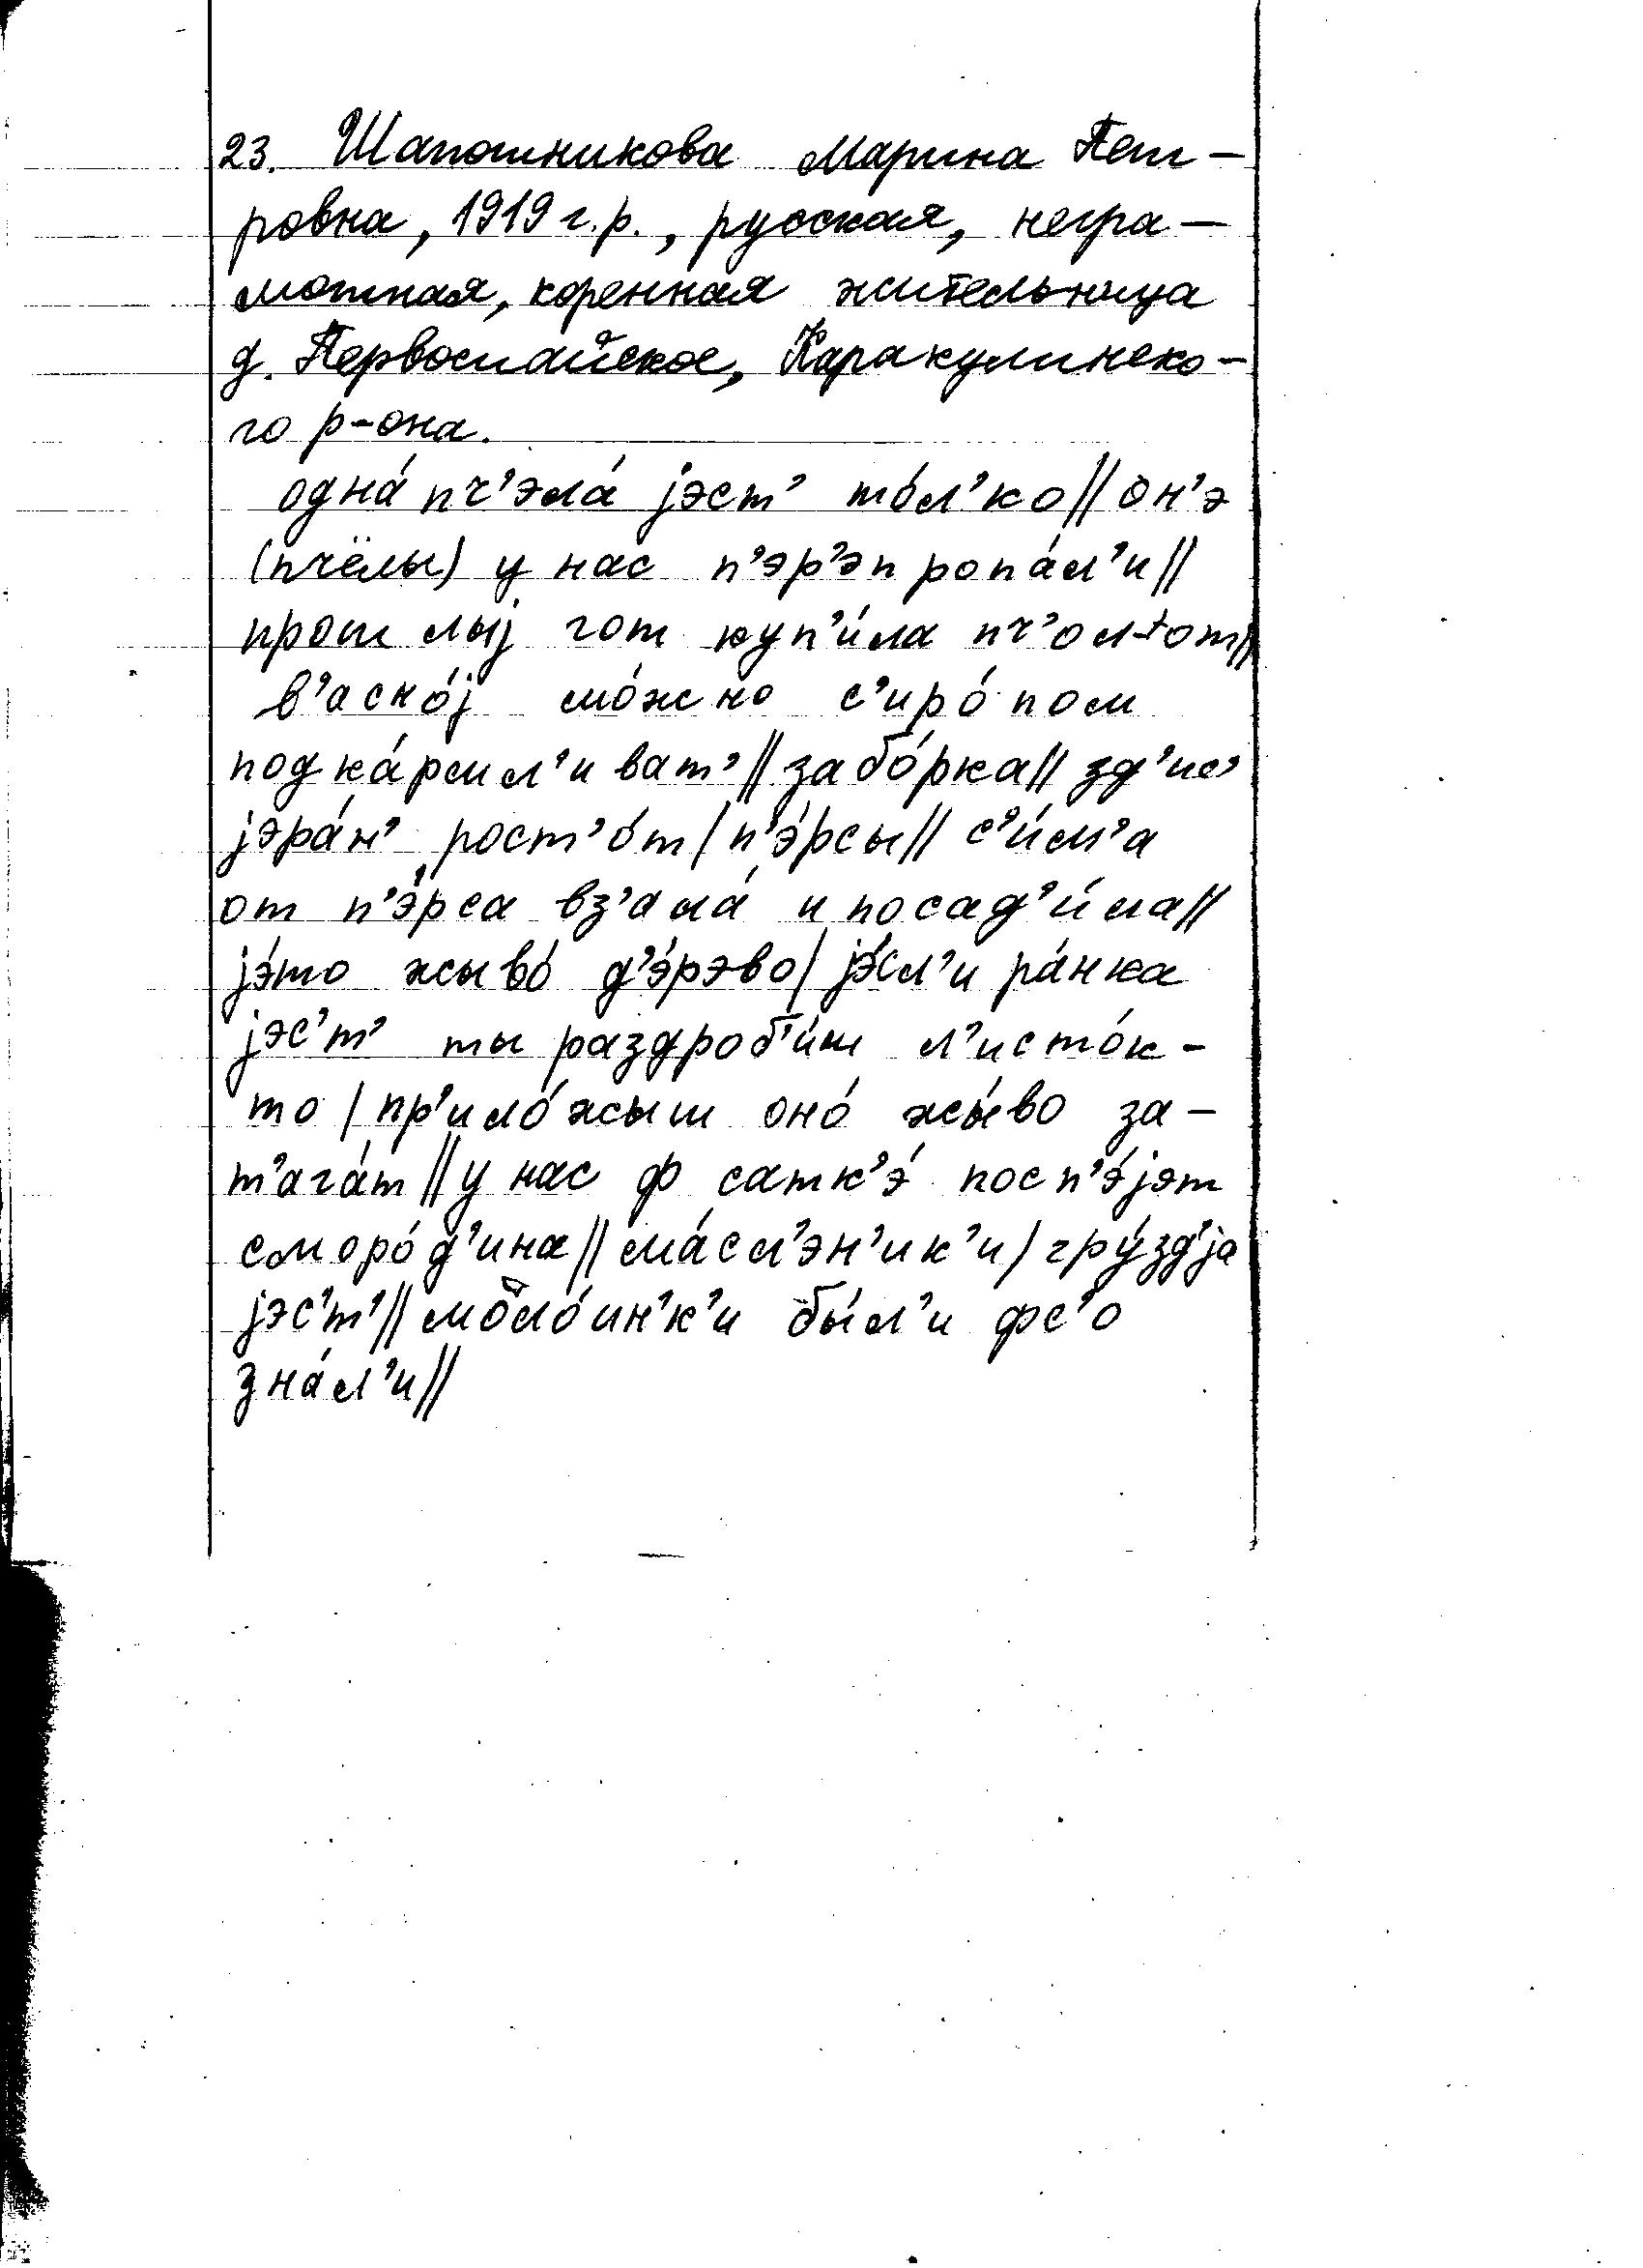 23. Шапошникова Марина Пет-
ровна, 1919 г.р., русская, негра-
мотная, коренная жительница
д. Первомайское, Каракулинско-
го р-она.
одна́ пч’эла́ jэст’ то́л’ко // он’э
(пчёлы) у нас п’эр’эпропа́л’и //
прошлыj гот куп’и́ла пч’ол-то //
в’асно́j мо́жно с’иро́пом
подка́рмл’иват’ // забо́рка // зд’ис’
jэра́н’ рост’о́т / п’э́рсы // с’и́м’а
от п’э́рса вз’ала́ и посад’и́ла //
jэ́то жыво́ д’э́рэво / jэ́сл’и ра́нка
jэс’т’ ты раздроб’и́ш л’исто́к-
то / пр’ило́жыш оно́ жы́во за-
т’ага́т // у нас ф сатк’э́ посп’э́jэт
сморо́д’ина // ма́сл’эн’ик’и / гру́зд’jа
jэс’т’ // моло́ин’к’и бы́л’и фс’о
зна́л’и //